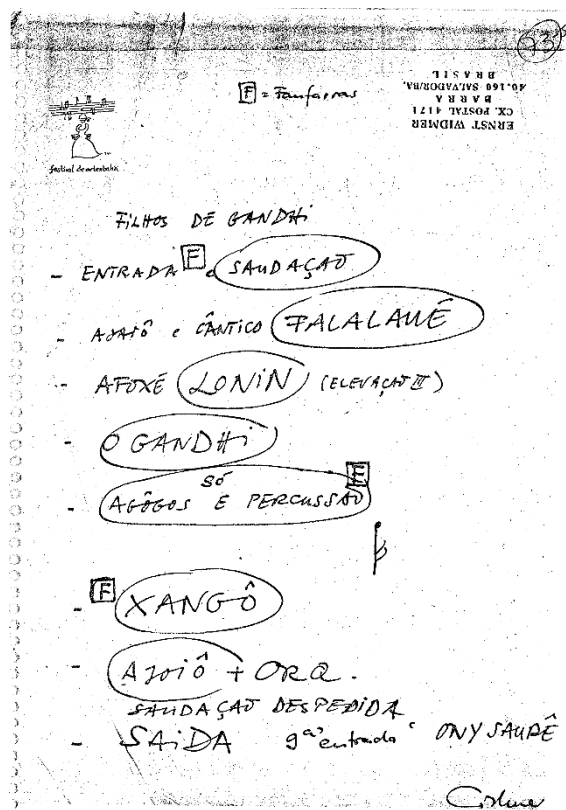 93
F = Fanfarras
ERNST WIDMER
CX. POSTAL 4171
BARRA
40.160 SALVADOR/BA.
BRASIL
festival de arte bahia
FiLHOS DE GANDHi
- ENTRADA F e SAUDAÇÃO
- AJAIÔ e CÂNTICO FALALAUÊ
- AFOXÉ LONiN (ELEVAÇÃO III)
- O GANDHi
SÓ
- AGÔGOS E PERCUSSÃO F
- F XANGÔ
- AJOIÔ + ORQ.
SAUDAÇÃO DESPEDIDA
- SAiDA 9ª "entrada" ONYSAUPÊ